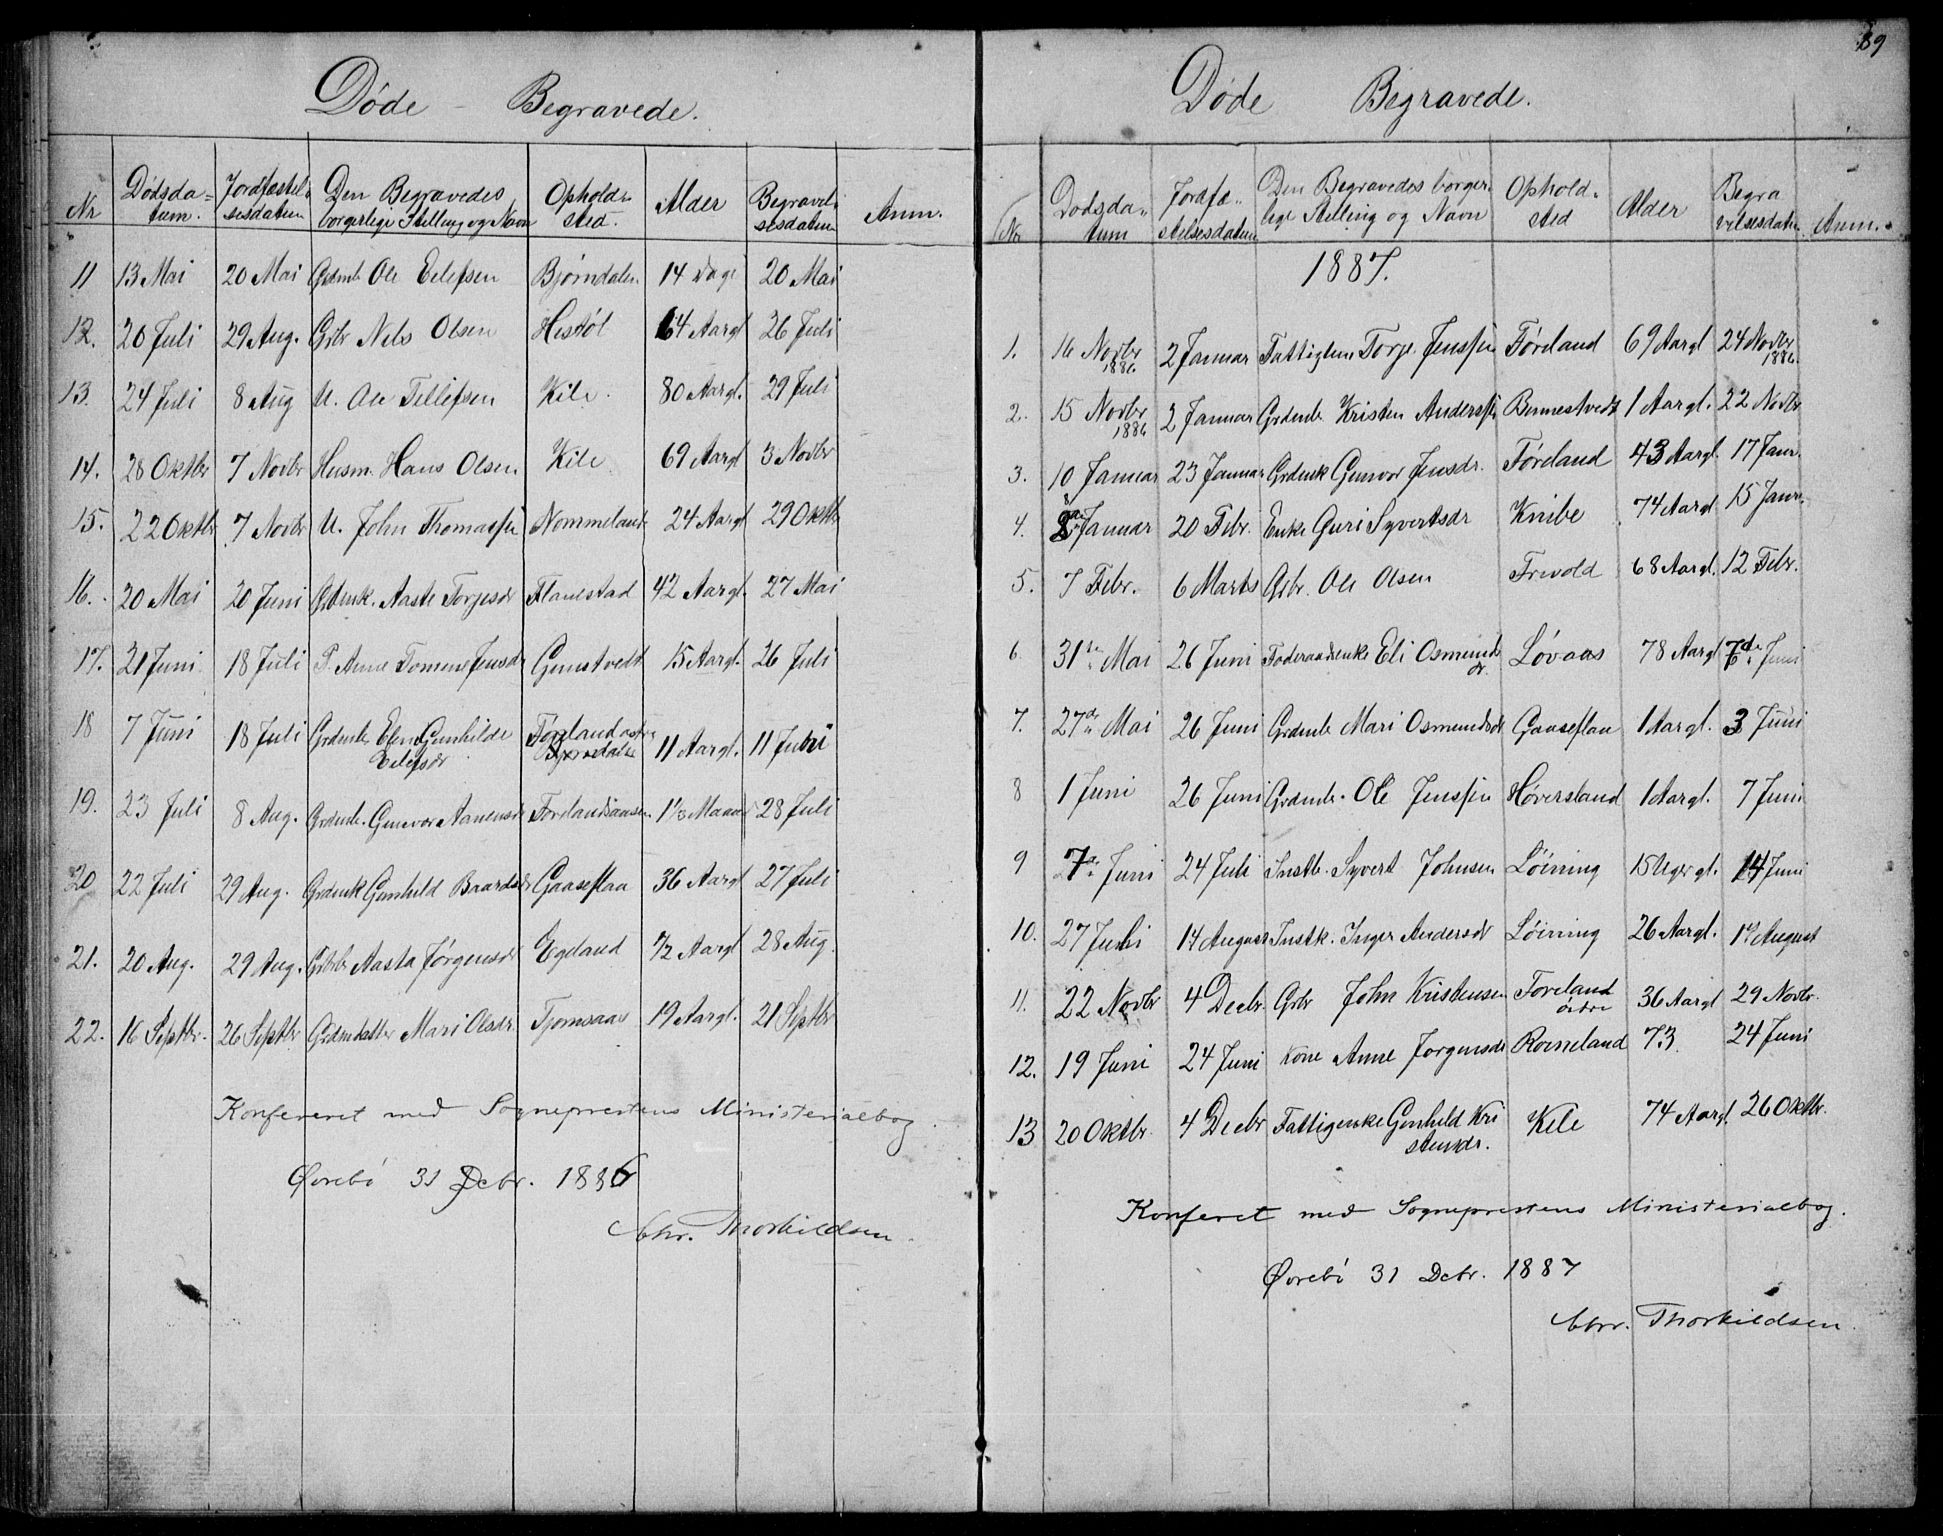 89
Døde - Begravede.
Nr Dødsda=tum. Jordfæstel=sesdatum Den Begravedes borgerlige Stilling og Navn Opholds=sted. Alder Begravel=sesdatum Anm.
11 13 Mai 20 Mai Grdmb Ole Eilefsen Bjørndalen 14 Dage 20 Mai
12. 20 Juli 29 Aug. Grbr Nils Olsen Hestøl 64 Aargl 26 Juli
13. 24 Juli 8 Aug U. Ole Tellefsen Kile. 80 Aargl. 29 Juli
14. 28 Oktbr 7 Novbr Husm. Hans Olsen Kile 69 Aargl 3 Novbr
15. 22 Oktbr 7 Novbr U. John Thomassen Nommeland 24 Aargl 29 Oktbr
16. 20 Mai 20 Juni Grdmk. Aaste Torjesdr Flanestad 42 Aargl. 27 Mai
17. 21 Juni 18 Juli P. Anne Tomine Jensdr Gumstvedt 15 Aargl. 26 Juli
18 7 Juni 18 Juli Grdmb Elen Gunhilde Føreland
Eilefsdr Bjørndalen 11 Aargl. 11 Juni
19. 23 Juli 8 Aug. Grdmb. Gunvor Aanensdr Førelandsaasen 1½ Maaned 28 Juli
20 22 Juli 29 Aug. Grdmk Gunhild Baardsdr Gaaseflaa 36 Aargl 27 Juli
21. 20 Aug. 29 Aug. Grbrb Aasta Jørgensdr Egeland ½ Aargl 28 Aug.
22. 16 Septbr. 26 Septbr Grdmdatter Mari Olsdr. Tjomsaas 19 Aargl. 21 Septbr
Konfereret med Sogneprestens Ministerialbog.
Øvrebö 31 Decbr. 1886
Chr. Thorkildsen.
Døde Begravede.
Nr Dødsda=tum Jordfæ=stelsesdatum Den Begravedes borger=lige Stilling og Navn Ophold=sted Alder Begravelsesdatum Anm.
1887.
1. 16 Novbr 1886. 2 Januar Fattiglem Torje Jenssen Føreland 69 Aargl 24 Novbr 1886.
2. 15 Novbr 1886 2 Januar Grdmb Kristen Anderssen Bennestvedt 1 Aargl. 22 Novbr
3. 10 Januar 23 Januar Grdmk Gunvor Jensdr. Føreland 43 Aargl. 17 Janr.
4. 8de Januar 20 Febr. Enke Guri Syvertsdr Knibe 74 Aargl 15 Janr.
5. 7 Febr. 6 Marts Grbr. Ole Olsen Frivold 68 Aargl. 12 Febr.
6. 31te Mai 26 Juni Føderaadsenke Eli Osmunds
dr. Løvaas 78 Aargl 7de Juni
7. 27de Mai 26 Juni Grdmb Mari Osmundsdr Gaaseflaa 1 Aargl. 3 Juni
8 1 Juni 26 Juni Grdmb. Ole Jenssen Høversland 1 Aargl. 7 Juni
9 7de Juni 24 Juli Instb. Syvert Johnsen Løining 15 Uger gl. 14 Juni
10. 27 Juli 14 August Instk. Inger Andersdr Løining 26 Aargl. 1ste August
11. 22 Novbr 4 Decbr. Grbr John Kristensen Føreland
östre 36 Aargl 29 Novbr.
12. 19 Juni 24 Juni Kone Anne Jørgensdr Roineland 73 24 Juni
13 20 Oktbr. 4 Decbr Fattigenke Gunhild Kri
stensdr. Kile 74 Aargl. 26 Oktbr.
Konferet med Sogneprestens Ministerialbog.
Øvrebö 31 Decbr. 1887
Chr. Thorkildsen.